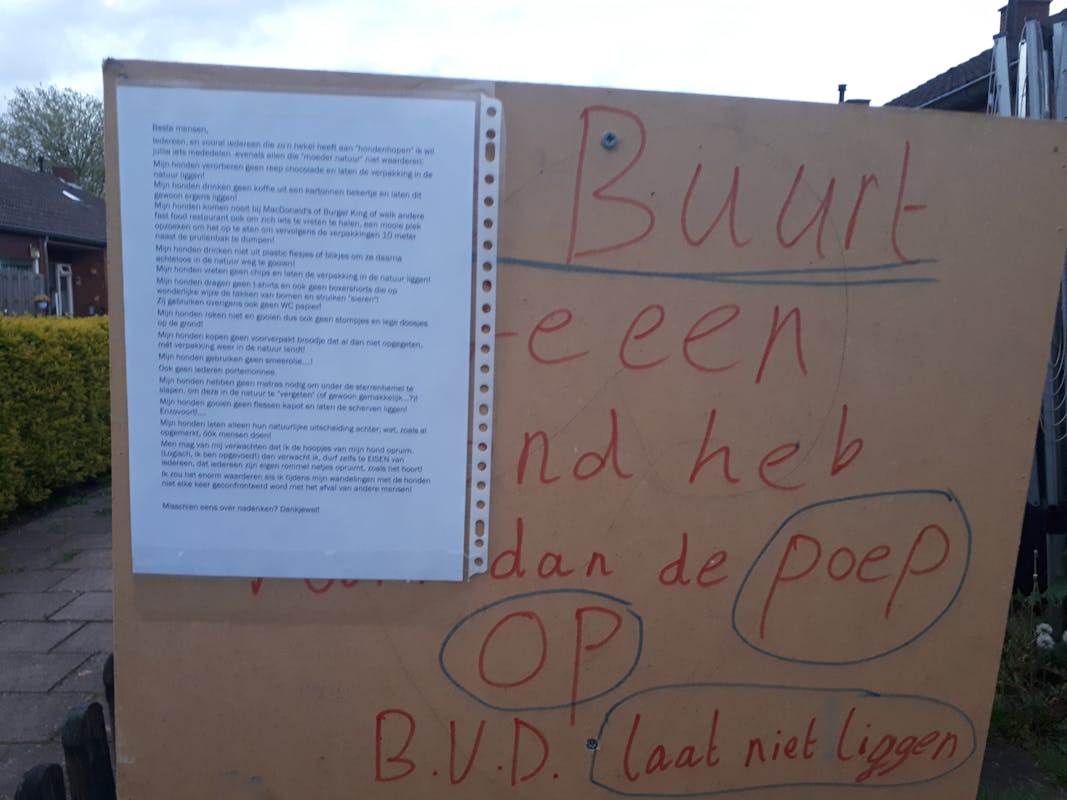 Beste mensen,
Iedereen, en vooral iedereen die zo'n hekel heeft aan "hondenhopen" ik wil
jullie iets mededelen -evenals allen die "moeder natuur" niet waarderen:
Mijn honden verorberen geen reep chocolade en laten de verpakking in de
natuur liggen!
Mijn honden drinken geen koffie uit een kartonnen bekertje en laten dit
gewoon ergens liggen!
Mijn honden komen nooit bij MacDonald's of Burger King of welk andere
fast food restaurant ook om zich iets te vreten te halen, een mooie plek
opzoeken om het op te eten om vervolgens de verpakkingen 10 meter
naast de prullenbak te dumpen!
Mijn honden drinken niet uit plastic flesjes of blikjes om ze daarna
achteloos in de natuur weg te gooien!
Mijn honden vreten geen chips en laten de verpakking in de natuur liggen!
Mijn honden dragen geen t-shirts en ook geen boxershorts die op
wonderlijke wijze de takken van bomen en struiken "sieren"!
Zij gebruiken overigens ook geen WC papier!
Mijn honden roken niet en gooien dus ook geen stompjes en lege doosjes
op de grond!
Mijn honden kopen geen voorverpakt broodje dat al dan niet opgegeten,
mét verpakking weer in de natuur landt!
Mijn honden gebruiken geen smeerolie...!
Ook geen lederen portemonnee.
Mijn honden hebben geen matras nodig om onder de sterrenhemel te
slapen, om deze in de natuur te "vergeten" (of gewoon gemakkelijk...?)!
Mijn honden gooien geen flessen kapot en laten de scherven liggen!
Enzovoort!...
Mijn honden laten alleen hun natuurlijke uitscheiding achter; wat, zoals al
opgemerkt, óók mensen doen!
Men mag van mij verwachten dat ik de hoopjes van mijn hond opruim.
(Logisch, ik ben opgevoed!) dan verwacht ik, durf zelfs te EISEN van
iedereen, dat iedereen zijn eigen rommel netjes opruimt, zoals het hoort!
Ik zou het enorm waarderen als ik tijdens mijn wandelingen met de honden
niet elke keer geconfronteerd word met het afval van andere mensen!
Misschien eens over nadenken? Dankjewel!
Buurt
een
nd heb
dan de poep
OP
B.V.D. laat niet liggen